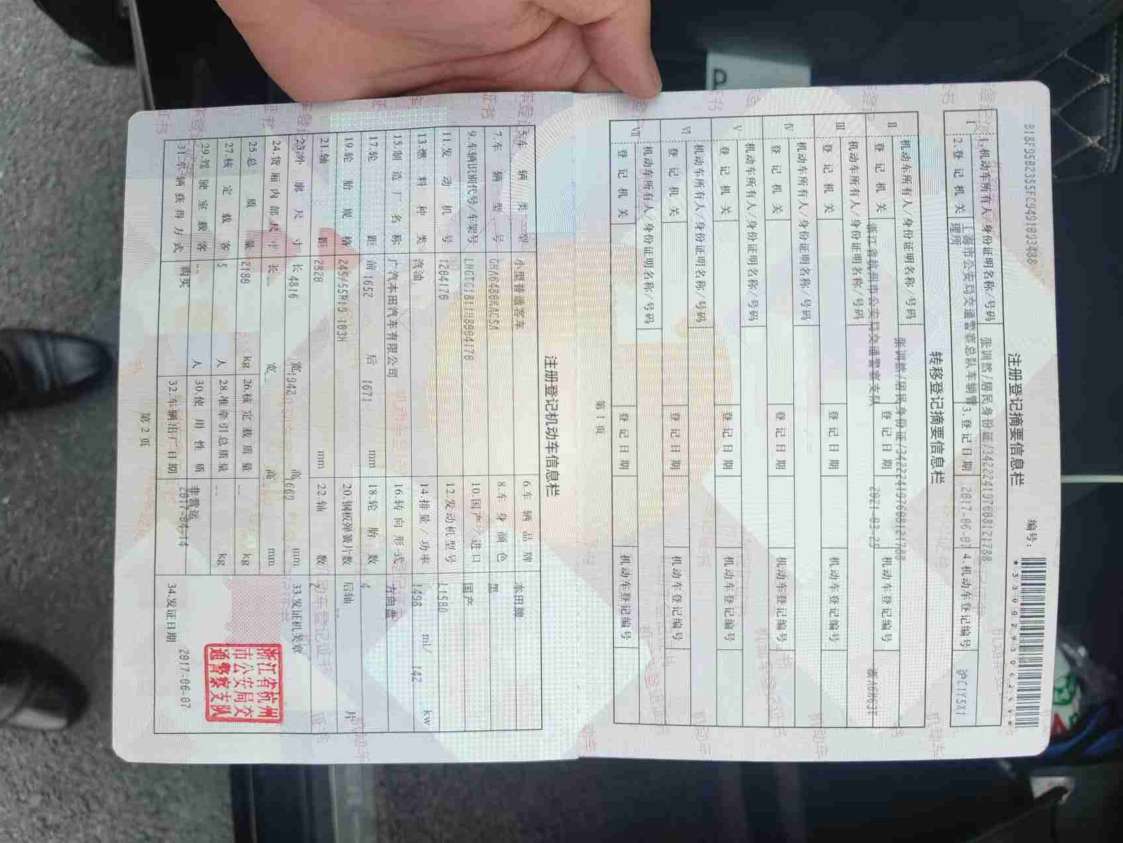 注册登记摘要信息栏
编号：
Ⅰ
1.机动车所有人/身份证明名称/号码
2.登记机关
上海市公安局交通警察总队车辆管理所
3.登记日期
4.机动车登记编号
转移登记摘要信息栏
Ⅱ
机动车所有人/身份证明名称/号码
登记机关
浙江省杭州市公安局交通警察支队
登记日期
2021-03-25
机动车登记编号
Ⅲ
机动车所有人/身份证明名称/号码
登记机关
登记日期
机动车登记编号
Ⅳ
机动车所有人/身份证明名称/号码
登记机关
登记日期
机动车登记编号
Ⅴ
机动车所有人/身份证明名称/号码
登记机关
登记日期
机动车登记编号
Ⅵ
机动车所有人/身份证明名称/号码
登记机关
登记日期
机动车登记编号
Ⅶ
机动车所有人/身份证明名称/号码
登记机关
登记日期
机动车登记编号
第 1 页
注册登记机动车信息栏
5.车辆类型 小型普通客车 6.车辆品牌 本田牌
7.车辆型号 8.车身颜色 黑
9.车辆识别代号/车架号 10.国产/进口 国产
11.发动机号 1204178 12.发动机型号 L15BD
13.燃料种类 汽油 14.排量/功率 1498 ml/ 142 kw
15.制造厂名称 广汽本田汽车有限公司 16.转向形式 方向盘
17.轮距 前 1652 后 1671 mm 18.轮胎数 4
19.轮胎规格 20.钢板弹簧片数 后轴 片
21.轴距 2820 mm 22.轴数 2
23.外廓尺寸 长 4816 宽 1942 高 1669 mm 33.发证机关章
24.货厢内部尺寸 长 宽 高 mm
25.总质量 kg 26.核定载质量 -- kg
27.核定载客 5 人 28.准牵引总质量 -- kg
29.驾驶室载客 -- 人 30.使用性质 非营运
31.车辆获得方式 购买 32.车辆出厂日期 34.发证日期 2017-06-07
浙江省杭州市公安局交通警察支队
第 2 页